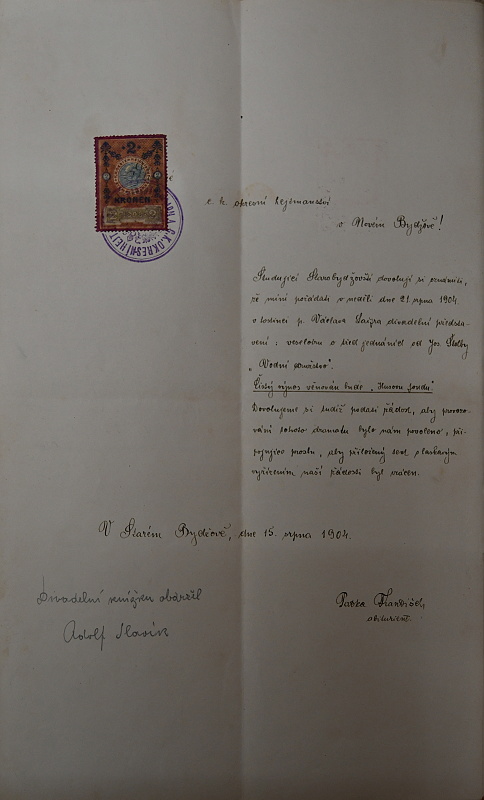 2
KORUN
C. K. OKRESNÍ HEJT
c. k. okresní hejtmanství
v Novém Bydžově!
Studující Starobydžovští dovolují si oznámiti,
že míní pořádati v neděli dne 21. srpna 1904
v hostinci p. Václava Šaiyra divadelní předsta-
vení: veselohru o třech jednáních od Jos. Štolby
„Vodní družstvo".
Čistý výnos věnován bude „Husovu fondu"
Dovolujeme si tudíž podati žádost, aby provozo-
vání tohoto dramatu bylo nám povoleno, při-
pojujíce prosbu, aby přiložený text s laskavým
vyřízením naší žádosti byl vrácen.
V Starém Bydžově, dne 15. srpna 1904.
Divadelní knížku obdržel
Adolf Slavík
František
abiturient.